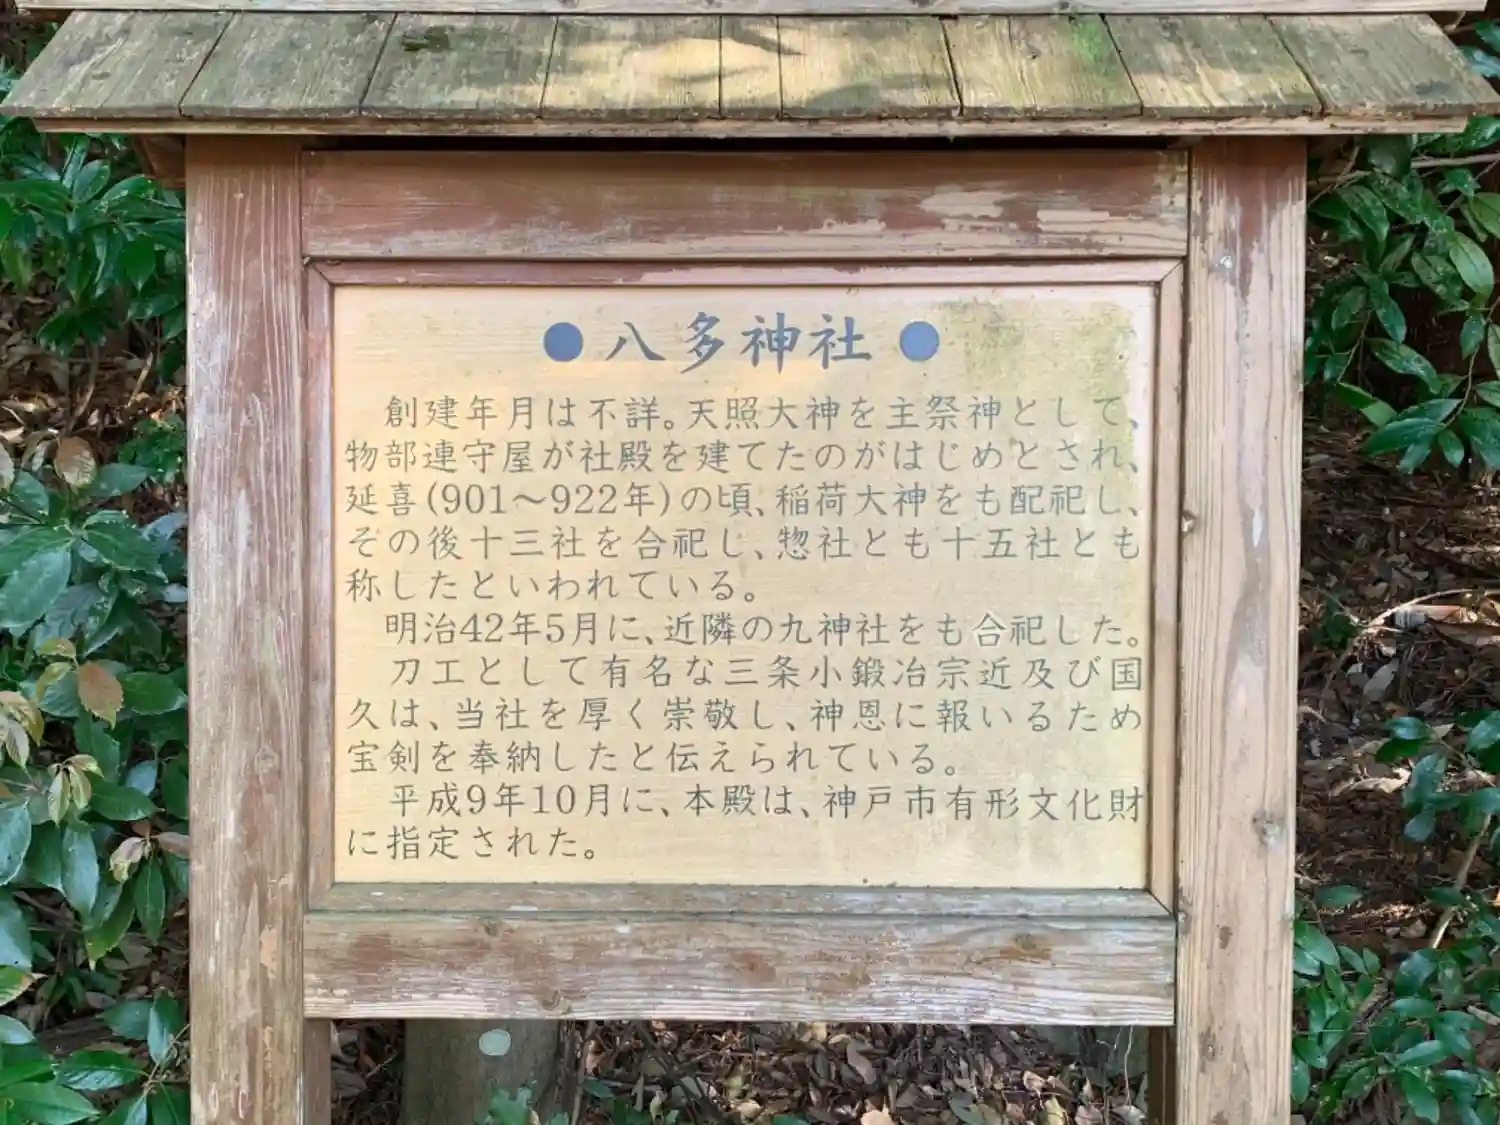 ●八多神社●
創建年月は不詳。天照大神を主祭神として、
物部連守屋が社殿を建てたのがはじめとされ、
延喜(901～922年)の頃、稲荷大神をも配祀し、
その後十三社を合祀し、惣社とも十五社とも
称したといわれている。
明治42年5月に、近隣の九神社をも合祀した。
刀工として有名な三条小鍛冶宗近及び国
久は、当社を厚く崇敬し、神恩に報いるため
宝剣を奉納したと伝えられている。
平成9年10月に、本殿は、神戸市有形文化財
に指定された。